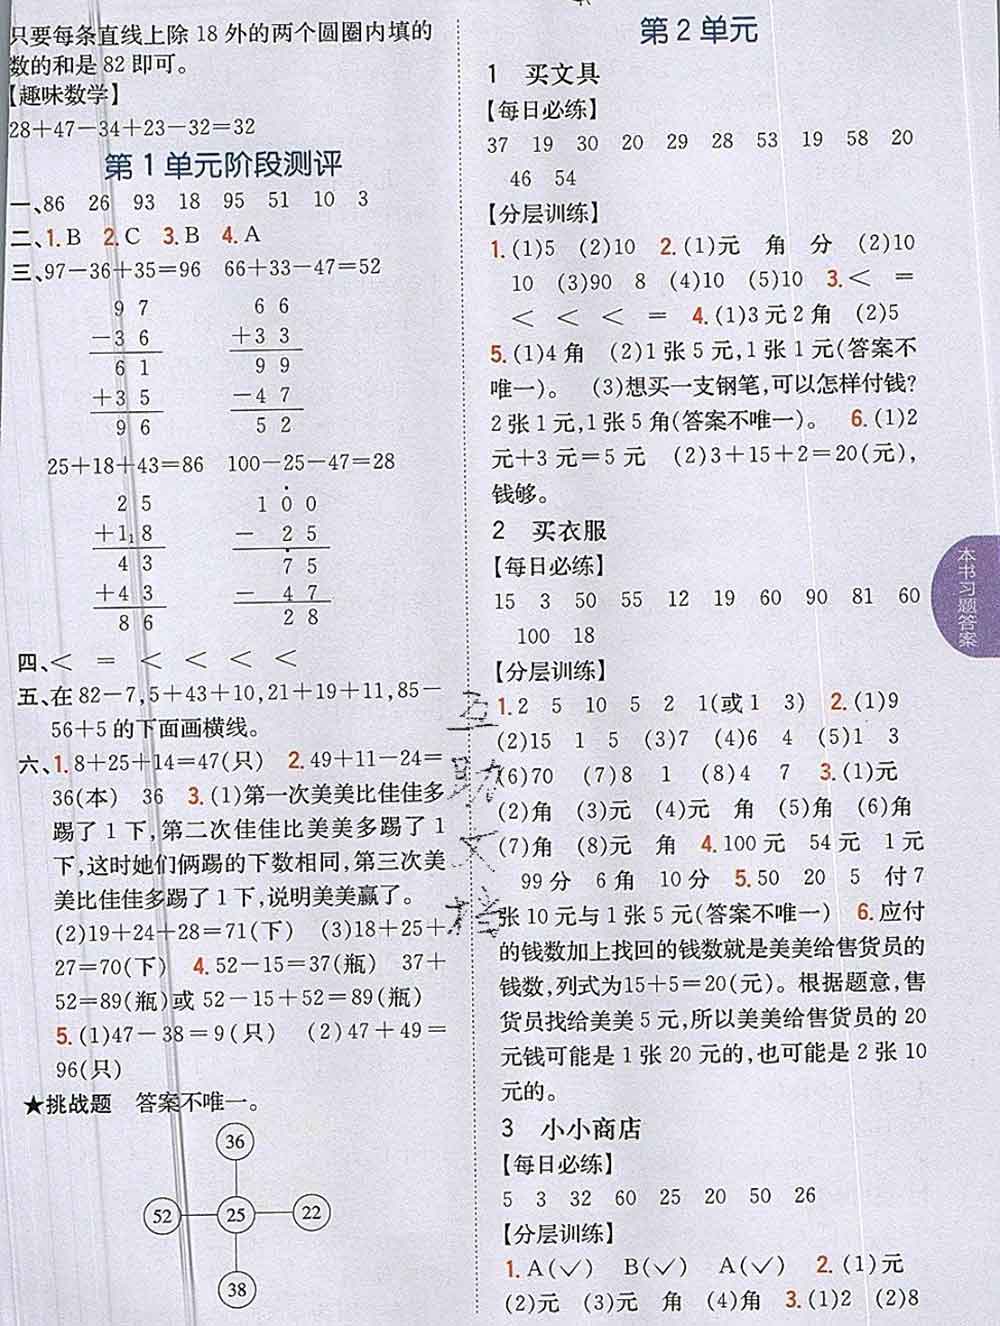 只要每条直线上除 18 外的两个圆圈内填的
数的和是 82 即可。
【趣味数学】
28+47-34+23-32=32
第 1 单元阶段测评
一、86 26 93 18 95 51 10 3
二、1. B 2. C 3. B 4. A
三、97-36+35=96 66+33-47=52
9 7 6 6
-3 6 +3 3
6 1 9 9
+3 5 -4 7
9 6 5 2
25+18+43=86 100-25-47=28
2 5 1 0 0
+1₁8 - 2 5
4 3 7 5
+4 3 - 4 7
8 6 2 8
四、< = < < < <
五、在 82-7,5+43+10,21+19+11,85-
56+5 的下面画横线。
六、1. 8+25+14=47(只) 2. 49+11-24=
36(本) 36 3. (1)第一次美美比佳佳多
踢了 1 下,第二次佳佳比美美多踢了 1
下,这时她们俩踢的下数相同,第三次美
美比佳佳多踢了 1 下,说明美美赢了。
(2)19+24+28=71(下) (3)18+25+
27=70(下) 4. 52-15=37(瓶) 37+
52=89(瓶)或 52-15+52=89(瓶)
5. (1)47-38=9(只) (2)47+49=
96(只)
★挑战题 答案不唯一。
36
52 25 22
38
第 2 单元
1 买文具
【每日必练】
37 19 30 20 29 28 53 19 58 20
46 54
【分层训练】
1. (1)5 (2)10 2. (1)元 角 分 (2)10
10 (3)90 8 (4)10 (5)10 3. < =
< < < = 4. (1)3 元 2 角 (2)5
5. (1)4 角 (2)1 张 5 元,1 张 1 元(答案不
唯一)。 (3)想买一支钢笔,可以怎样付钱?
2 张 1 元,1 张 5 角(答案不唯一)。 6. (1)2
元+3 元=5 元 (2)3+15+2=20(元),
钱够。
2 买衣服
【每日必练】
15 3 50 55 12 19 60 90 81 60
100 18
【分层训练】
1. 2 5 10 5 2 1(或 1 3) 2. (1)9
(2)15 1 5 (3)7 (4)6 4 (5)1 3
(6)70 (7)8 1 (8)4 7 3. (1)元
(2)角 (3)元 (4)元 角 (5)角 (6)角
(7)角 (8)元 角 4. 100 元 54 元 1 元
99 分 6 角 10 分 5. 50 20 5 付 7
张 10 元与 1 张 5 元(答案不唯一) 6. 应付
的钱数加上找回的钱数就是美美给售货员的
钱数,列式为15+5=20(元)。根据题意,售
货员找给美美 5 元,所以美美给售货员的 20
元钱可能是 1 张 20 元的,也可能是 2 张 10
元的。
3 小小商店
【每日必练】
5 3 32 60 25 20 50 26
【分层训练】
1. A(✓) B(✓) A(✓) 2. (1)元
(2)元 (3)元 角 (4)角 3. (1)2 (2)8
本书习题答案
互助文档